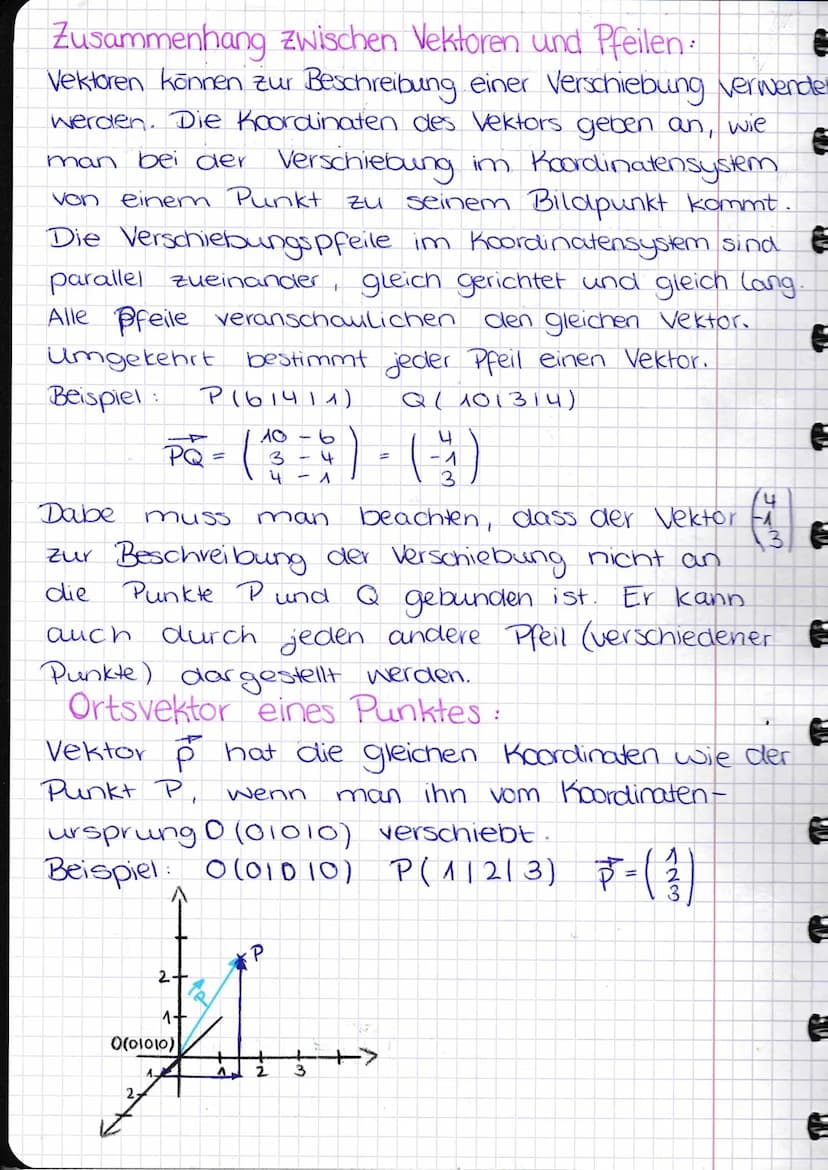 Zusammenhang zwischen Vektoren und Pfeilen:
Vektoren können zur Beschreibung einer Verschiebung verwende
werden. Die Koordinaten des Vektors geben an, wie
man bei der Verschiebung im Koordinatensystem
von einem Punkt zu seinem Bildpunkt kommt.
Die Verschiebungspfeile im Koordinatensystem sind
parallel zueinander, gleich gerichtet und gleich lang.
Alle Pfeile veranschaulichen den gleichen Vektor.
Umgekehrt bestimmt jeder Pfeil einen Vektor.
Beispiel: P(6|4|1) Q(10|3|4)
PQ⃗ = (10 - 6 / 3 - 4 / 4 - 1) = (4 / -1 / 3)
Dabe muss man beachten, dass der Vektor (4 / -1 / 3)
zur Beschreibung der Verschiebung nicht an
die Punkte P und Q gebunden ist. Er kann
auch durch jeden andere Pfeil (verschiedener
Punkte) dargestellt werden.
Ortsvektor eines Punktes:
Vektor p⃗ hat die gleichen Koordinaten wie der
Punkt P, wenn man ihn vom Koordinaten-
ursprung O(0|0|0) verschiebt.
Beispiel: O(0|0|0) P(1|2|3) p⃗ = (1 / 2 / 3)
P
2
p⃗
1
O(0|0|0)
1 1 2 3
2